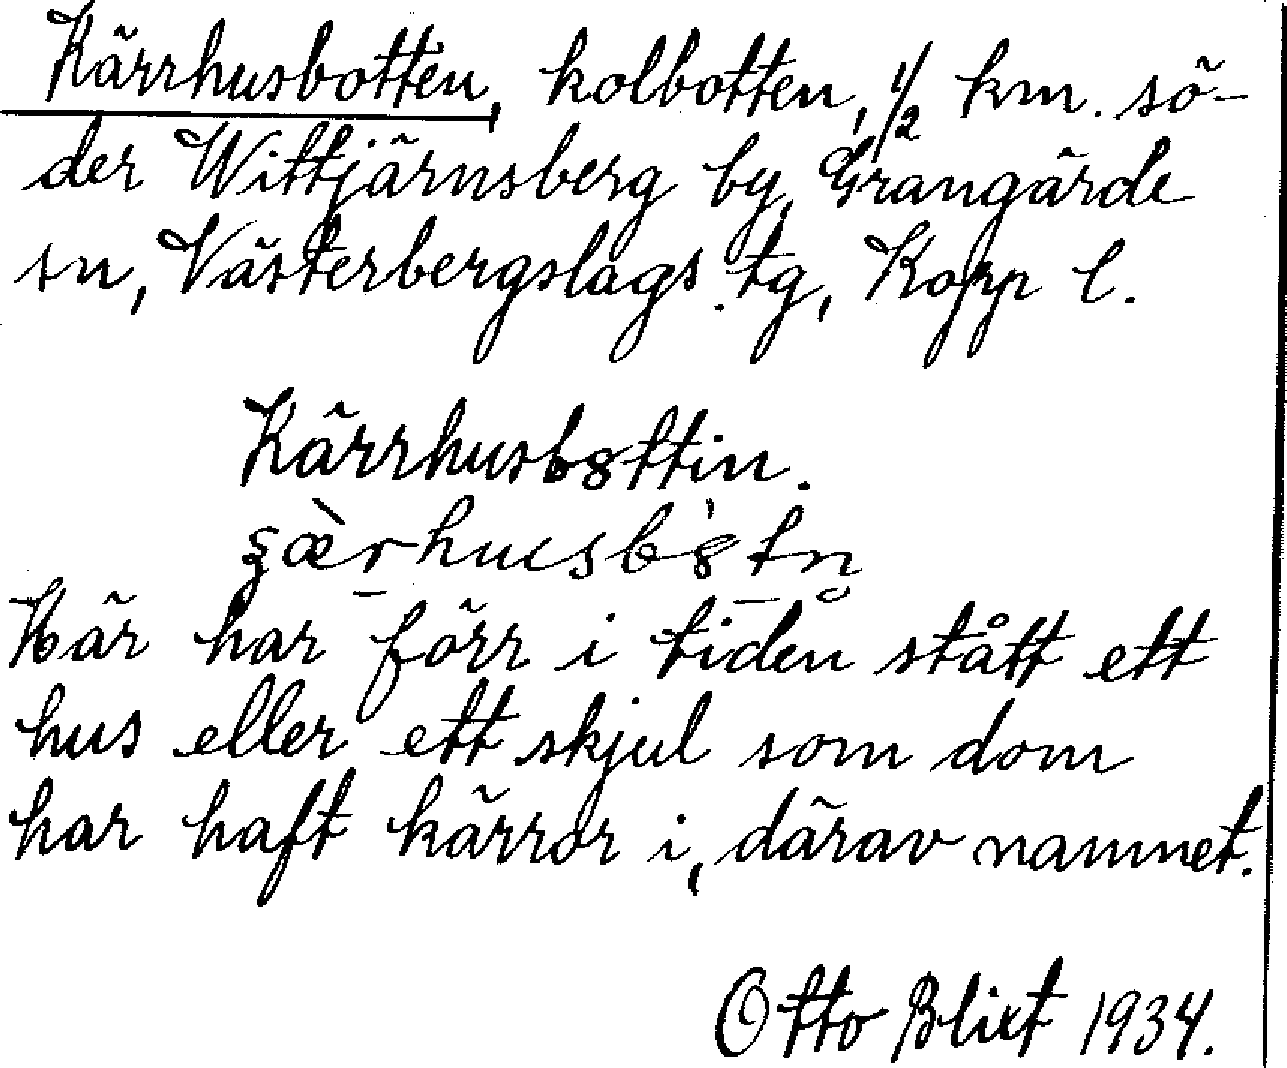 Kärrhusbotten, kolbotten, 1/2 km. sö-
der Wittjärnsberg by, Grangärde
sn, Västerbergslags. tg, Kopp l.
Kärrhusbȣttin.
Här har förr i tiden stått ett
hus eller ett skjul som dom
har haft kärror i, därav namnet.
Otto Blixt 1934.